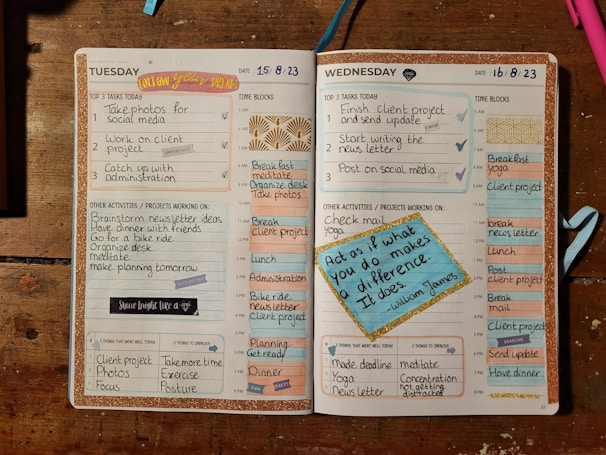 TUESDAY
DATE : 15/8/23
TOP 3 TASKS TODAY
1 Take photos for
social media
2 Work on client
project
3 Catch up with
administration
OTHER ACTIVITIES / PROJECTS WORKING ON:
Brainstorm newsletter ideas
Have dinner with friends
Go for a bike ride
Organize desk
meditate
make planning tomorrow
Shine bright like a
3 THINGS THAT WENT WELL TODAY
3 THINGS TO IMPROVE
1 Client project
Take more time
2 Photos
Exercise
3 Focus
Posture
TIME BLOCKS
5 AM
6 AM
7 AM
Breakfast
meditate
Organize desk
Take photos
Break
client project
Lunch
Administration
Bike ride
newsletter
Client project
Planning
Get ready
Dinner
FUN
PARTY
8 PM
WEDNESDAY
DATE : 16/8/23
TOP 3 TASKS TODAY
1 Finish client project
and send update
2 Start writing the
news letter
3 Post on social media
OTHER ACTIVITIES / PROJECTS WORKING ON:
check mail
yoga
Act as if what
you do makes
a difference.
It does.
-William James
3 THINGS THAT WENT WELL TODAY
3 THINGS TO IMPROVE
1 Made deadline
meditate
2 Yoga
Concentration
3 News letter
not getting
distracted
TIME BLOCKS
5 AM
6 AM
7 AM
Breakfast
yoga
Client project
break
news letter
Lunch
Post
client project
Break
mail
Client project
DEADLINE
Send update
Have dinner
8 PM